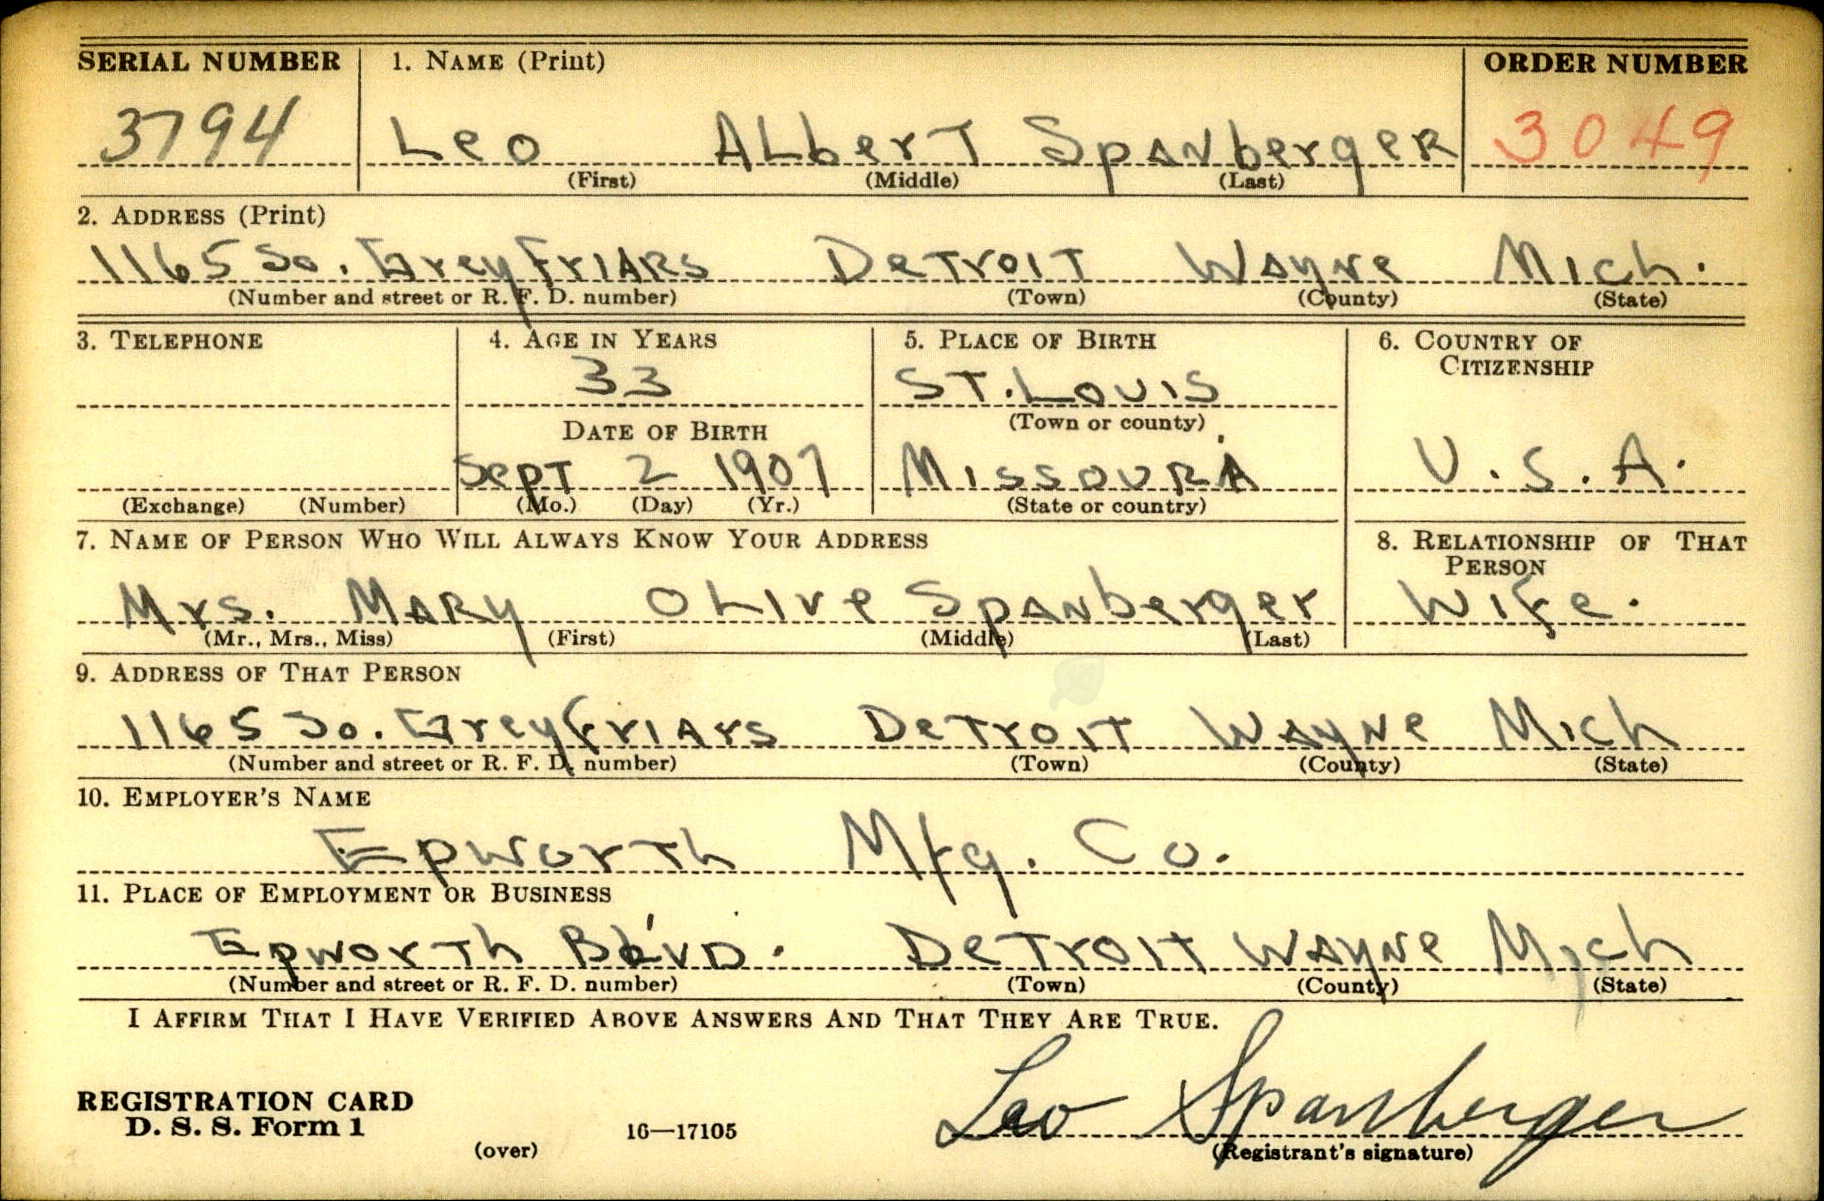 SERIAL NUMBER 1. NAME (Print) ORDER NUMBER
3794 Leo ALbert Spanberger 3049
(First) (Middle) (Last)
2. ADDRESS (Print)
1165 So. Greyfriars Detroit Wayne Mich.
(Number and street or R. F. D. number) (Town) (County) (State)
3. TELEPHONE 4. AGE IN YEARS 5. PLACE OF BIRTH 6. COUNTRY OF CITIZENSHIP
33 ST. LOUIS
DATE OF BIRTH (Town or county)
Sept 2 1907 MISSOURI U.S.A.
(Exchange) (Number) (Mo.) (Day) (Yr.) (State or country)
7. NAME OF PERSON WHO WILL ALWAYS KNOW YOUR ADDRESS 8. RELATIONSHIP OF THAT PERSON
Mrs. MARY OLive Spanberger Wife.
(Mr., Mrs., Miss) (First) (Middle) (Last)
9. ADDRESS OF THAT PERSON
1165 So. Greyfriars Detroit Wayne Mich
(Number and street or R. F. D. number) (Town) (County) (State)
10. EMPLOYER'S NAME
Epworth Mfg. Co.
11. PLACE OF EMPLOYMENT OR BUSINESS
Epworth Bl'vd. Detroit Wayne Mich
(Number and street or R. F. D. number) (Town) (County) (State)
I AFFIRM THAT I HAVE VERIFIED ABOVE ANSWERS AND THAT THEY ARE TRUE.
Leo Spanberger
REGISTRATION CARD
D. S. S. Form 1 16—17105
(over) (Registrant's signature)